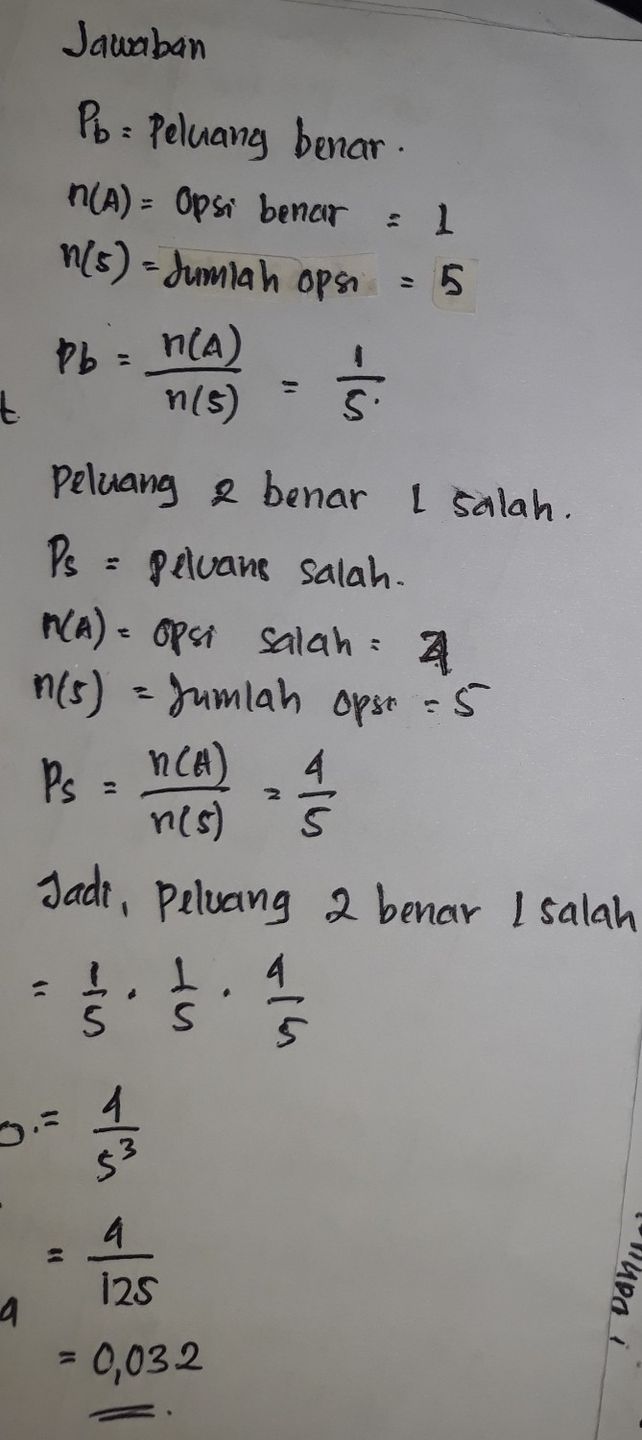 Jawaban
Pb = Peluang benar.
n(A) = Opsi benar = 1
n(s) = Jumlah opsi = 5
Pb = n(A)/n(s) = 1/5.
Peluang 2 benar 1 salah.
Ps = Peluang salah.
n(A) = opsi salah = 4
n(s) = Jumlah opsi = 5
Ps = n(A)/n(s) = 4/5
Jadi, Peluang 2 benar 1 salah
= 1/5 . 1/5 . 4/5
= 4/5³
= 4/125
= 0,032